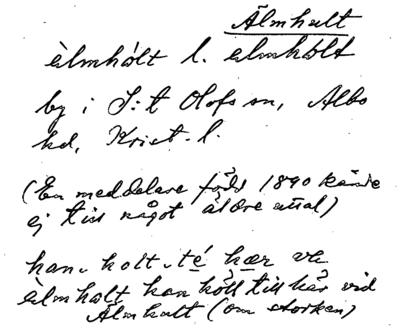 Älmhult
èlmhól̀t l. elmhòlt
by i S:t Olofs sn, Albo
hd, Krist. l.
(En meddelare född 1890 kände
ej till något äldre uttal)
han. holt. té hær ve
èlmholt han höll till här vid
Älmhult (om storken)